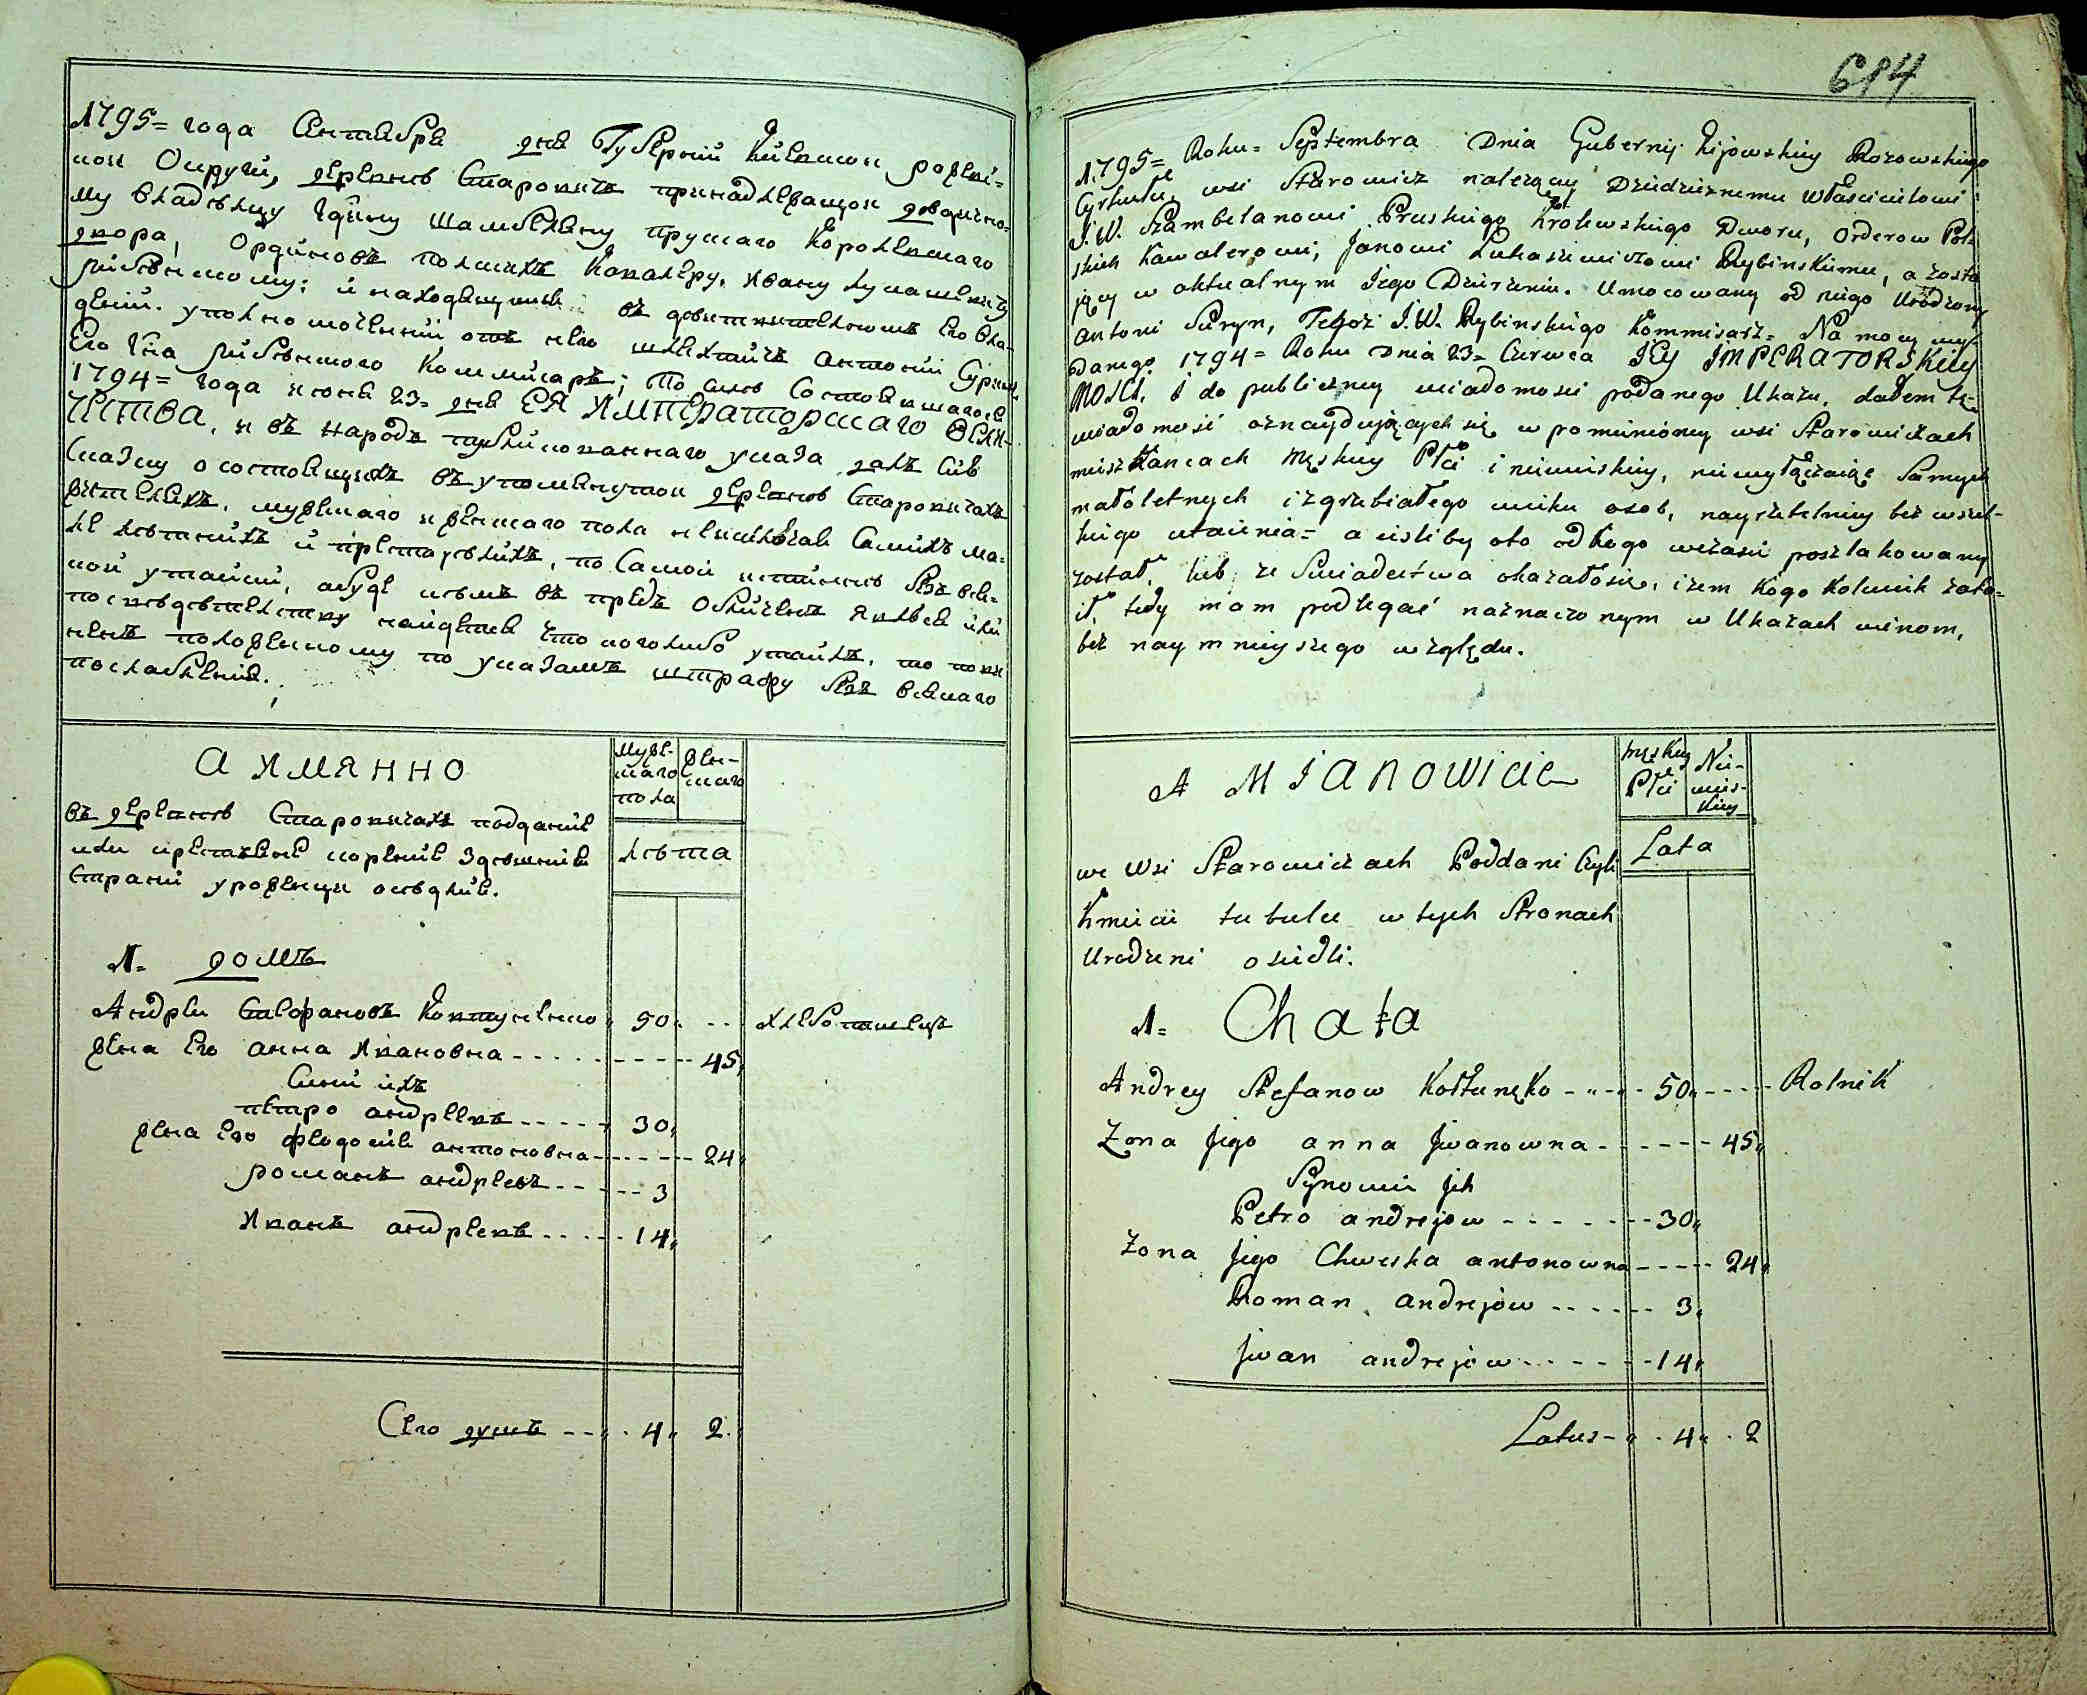 1795= года Сентября дня Губернии Киевской радомысль-
ской Округи, деревнѣ Старовичъ принадлежащой дѣдично-
му владѣльцу Гдину Шамбеляну прускаго Королевскаго
двора, Ординовъ полскихъ Кавалѣру, Ивану Лукашевичу
рибѣнскому; и находящуюсь въ дѣйствительномъ Его вла-
дѣнии. уполномоченний отъ него шляхтичъ антоний Сурин
Его Гдна рибѣнскаго Коммисаръ; По силѣ Состоявшагося
1794= года июня 23= дня ЕЯ ИМПЕРАТОРСКАГО ВЕЛИ-
ЧЕСТВА, и въ народъ публикованнаго указа далъ сию
Сказку о состоящихъ въ упомянутой деревнѣ Старовичахъ
жителяхъ, мужескаго и женскаго пола неисключая Самихъ ма-
лѣтнихъ и престарѣлихъ, по Самой истиннѣ безъ вся-
кой утайки, абуде кѣмъ въ предъ обличенъ явлюсь или
по свидѣтелству найдется что коголибо утаилъ, то пови-
ненъ положенному по указамъ штрафу безъ всякаго
послабления.
А ИМЯННО
Муже-
скаго
пола
жен-
скаго
лѣта
въ деревнѣ Старовичахъ поддание
или крестьяне корение Здѣшние
Страни уроженци осѣдлие.
1= домъ
Андрей Стефановъ Ковтуненко 50 хлебопашецъ
жена Его анна Ивановна 45
Сини ихъ
петро андреевъ 30
жена Его феодосия антоновна 24
романъ андреевъ 3
Иванъ андреевъ 14
Сего душъ 4 2
614
1795= Roku= Septembra Dnia Gubernij Kijowskiey
Cyrkułu, wsi Starowicz należący Dziedzicznemu Właścicielowi
J.W. Szambelanowi Pruskiego Krolewskiego Dworu, Orderow Pol-
skich Kawalerowi, Janowi Łukaszewiczowi Rybinskiemu, a zosta-
jący w aktualnym Jego Dzierżeniu. Umocowany od niego Urodzony
Antoni Suryn, Tegoż J.W. Rybinskiego Kommisarz= Na mocy wy-
danego 1794= Roku Dnia 23= Czerwca JEY IMPERATORSKIEY
MOSCI, i do publiczney wiadomosci podanego Ukazu, dałem tę
wiadomość oznaydujących się w pomienioney wsi Starowiczach
mieszkancach Męskiey Płci i niewieskiey, niewyłączaiąc Samych
małoletnych i zgrzybiałego wieku osob, nayrzetelniey bez wszel-
kiego utaienia= a iesliby oto odkogo wczasie poszlakowany
został, lub ze Swiadectwa okazałosię, iżem Kogo Kolwiek zata-
ił, tedy mam podlegać naznaczonym w Ukazach winom,
bez naymnieyszego względu.
A MIANOWICIE
Męskiey
Płci
Nie-
wies-
kiey
Lata
we Wsi Starowiczach Poddani Czyli
Kmiecie tuteiu w tych Stronach
Urodzeni osiedli.
1= Chata
Andrey Stefanow Kołtunęko 50 Rolnik
Żona Jego anna Jwanowna 45
Synowie Jch
Petro andrejow 30
Żona Jego Chweska antonowna 24
Roman andrejow 3
Jwan andrejow 14
Latus 4 2